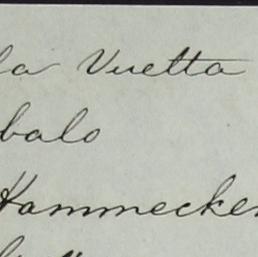 la Vuetta
balo
Hammecker